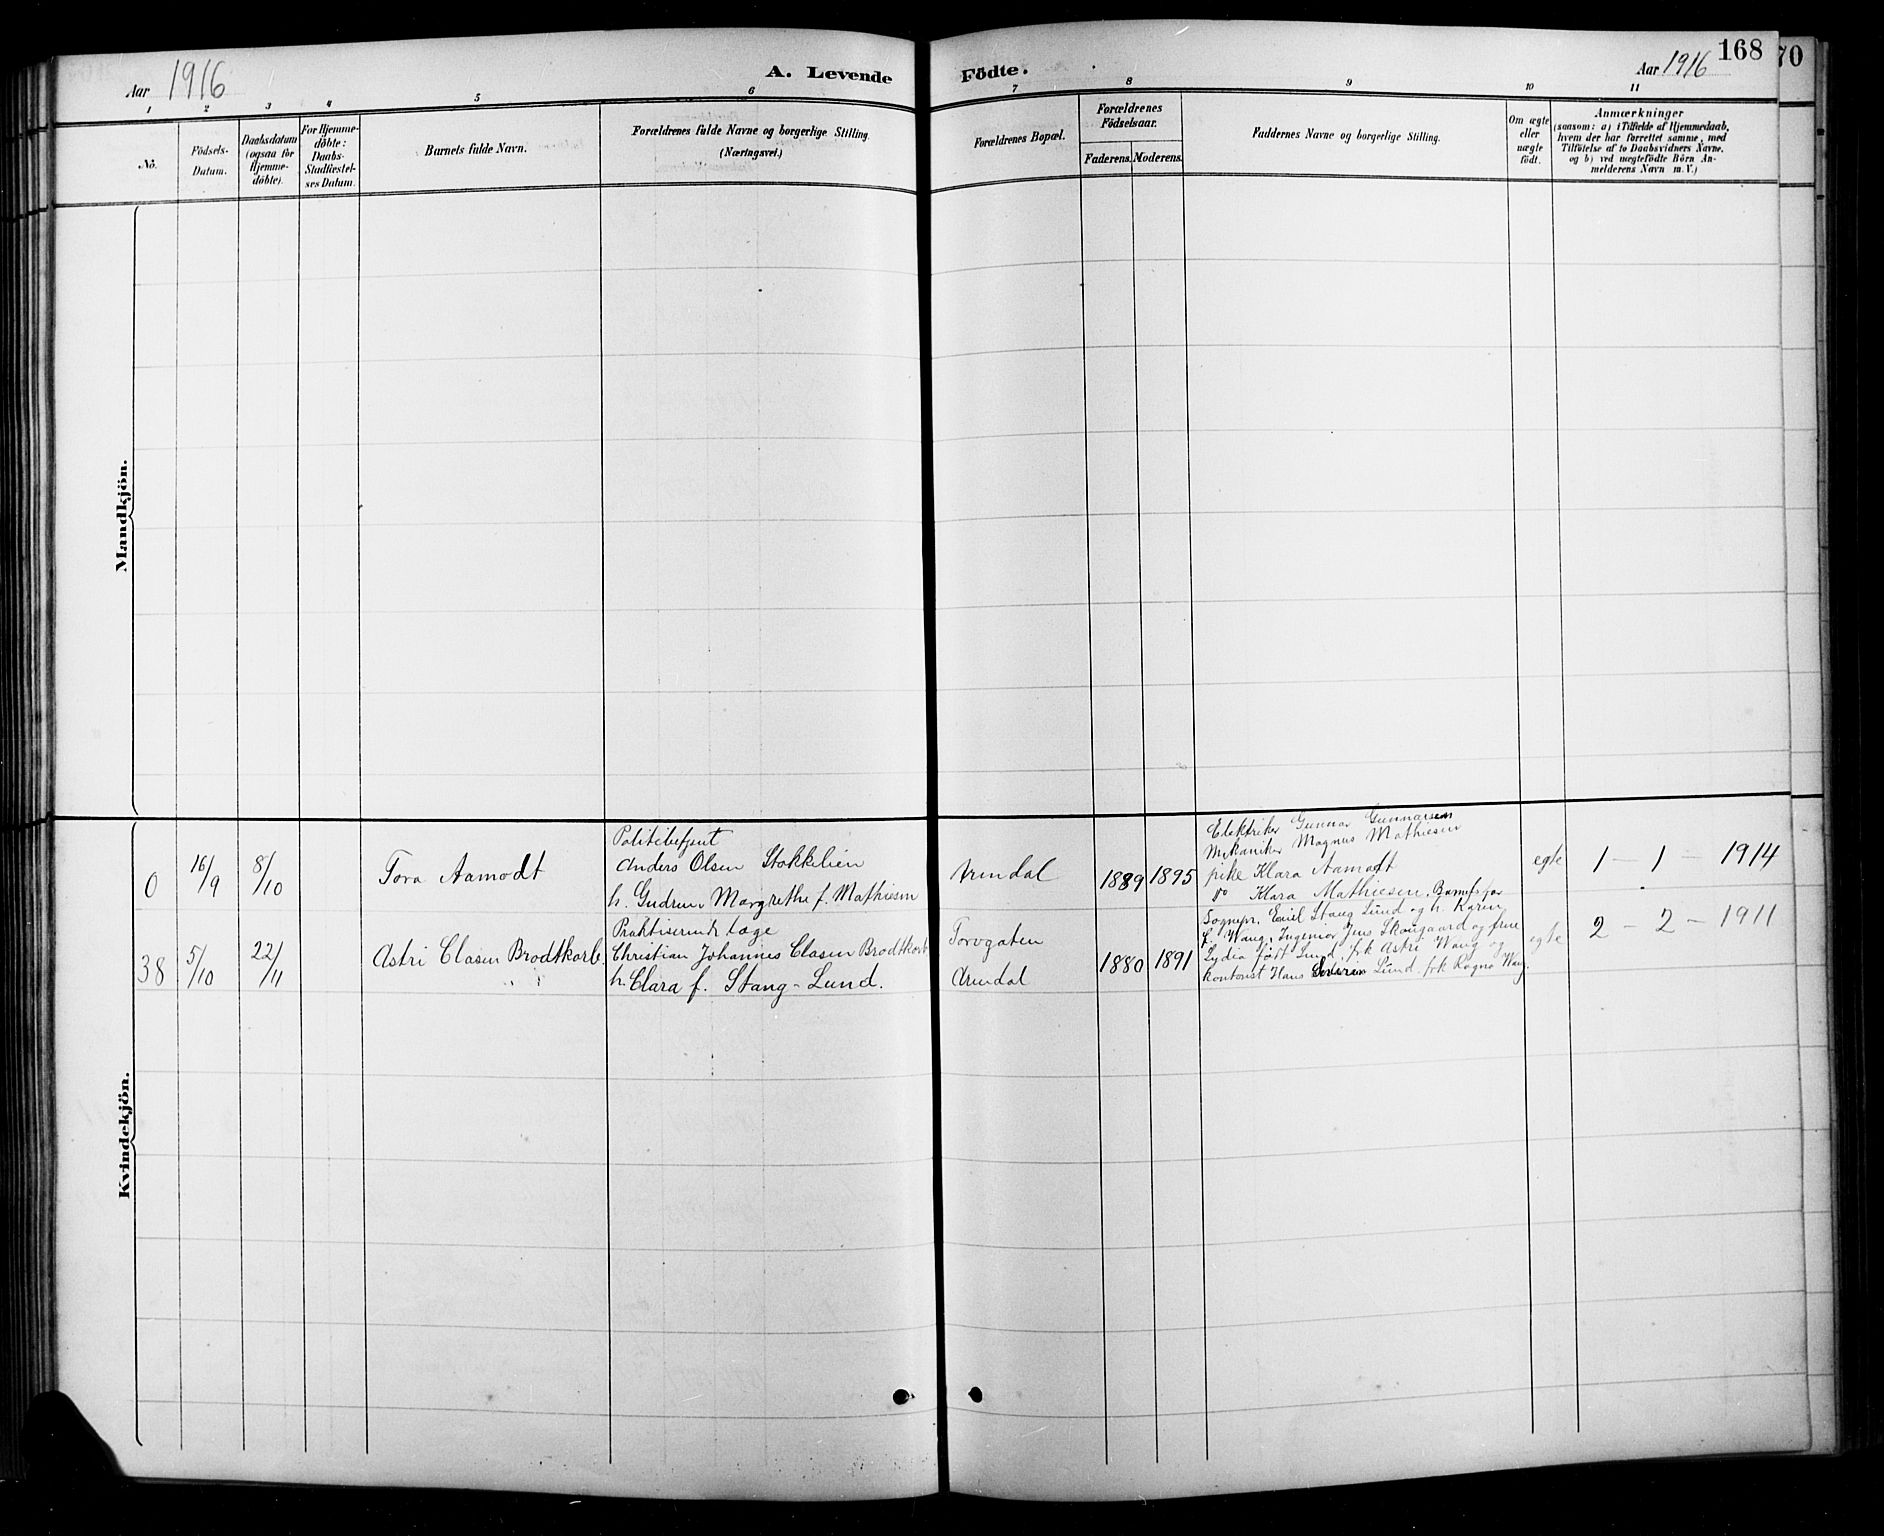 Aar 1916
A. Levende
Födte.
Aar 1916
168
70
1 2 3 4 5 6 7 8 9 10 11
No.
Födsels-
Datum.
Daabsdatum
(ogsaa for
Hjemme-
döbte).
For Hjemme-
döbte:
Daabs-
Stadfæstel-
ses Datum.
Barnets fulde Navn.
Forældrenes fulde Navne og borgerlige Stilling.
(Næringsvei.)
Forældrenes Bopæl.
Forældrenes
Födselsaar.
Faderens. Moderens.
Faddernes Navne og borgerlige Stilling.
Om ægte
eller
uægte
födt.
Anmærkninger
(saasom: a) i Tilfælde af Hjemmedaab,
hvem der har forrettet samme, med
Tilföielse af to Daabsvidners Navne,
og b) ved uægtefödte Börn An-
melderens Navn m. V.)
Mandkjön.
Kvindekjön.
0
16/9
8/10
Tora Aamodt
Politibetjent
Anders Olsen Stokkelien
h. Gudrun Margrethe f. Mathiesen
Arendal
1889 1895
Elektriker Gunnar Gunnarsen
Mekaniker Magnus Mathiesen
pike Klara Aamodt
do Klara Mathiesen, Barnets far
egte
1 - 1 - 1914
38
5/10
22/11
Astri Clasen Brodtkorb.
Praktiserende læge
Christian Johannes Clasen Brodtkorb
h. Clara f. Stang-Lund.
Torvgaten
Arendal
1880 1891
Sognepr. Emil Stang Lund og h. Karen
f. Wang, Ingeniør Jens Skougaard og frue
Lydia født Lund, frk Astri Wang og
kontorist Hans Lund, frk Ragna Wang.
egte
2 - 2 - 1911